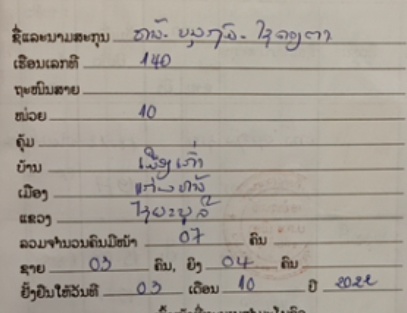 ຊື່ແລະນາມສະກຸນ ທ້າວ ບຸນກວ້າງ
ເຮືອນເລກທີ 140
ຖະໜົນສາຍ
ໜ່ວຍ 10
ຄຸ້ມ
ບ້ານ ເມືອງເກົ່າ
ເມືອງ ແກ່ນທ້າວ
ແຂວງ ໄຊຍະບູລີ
ລວມຈຳນວນຄົນມີໜ້າ 07 ຄົນ
ຊາຍ 03 ຄົນ, ຍິງ 04 ຄົນ
ຢັ້ງຢືນໃຫ້ວັນທີ 03 ເດືອນ 10 ປີ 2022